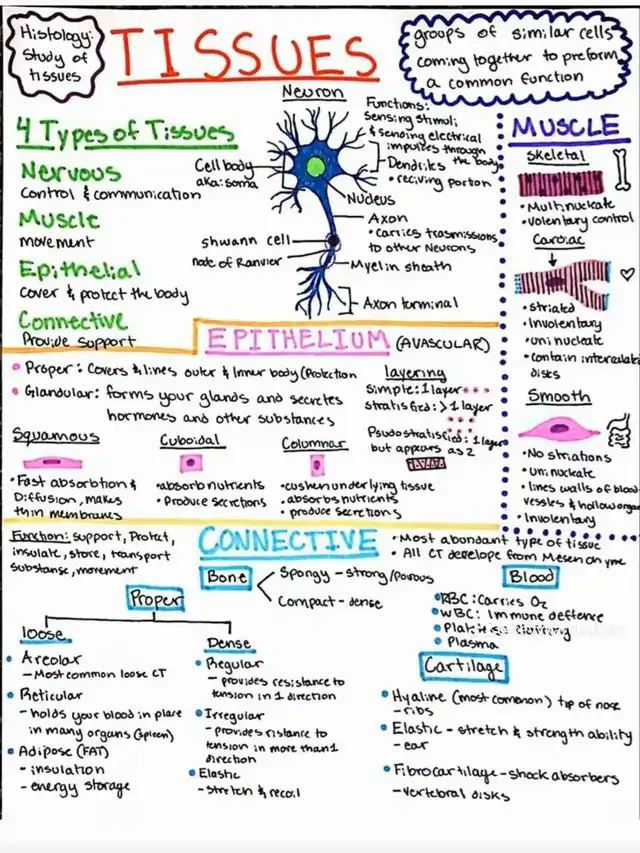 Histology:
Study of
tissues
TISSUES
groups of similar cells
coming together to preform
a common function
4 Types of Tissues
Nervous
Control & communication
Muscle
movement
Epithelial
Cover & protect the body
Connective
Provide support
Neuron
Functions:
Sensing stimuli
& sending electrical
impulses through
the body
Cell body
aka: soma
Dendrites
• reciving portion
Nucleus
Axon
• carries trasmissions
to other Neurons
shwann cell
node of Ranvier
Myelin sheath
Axon terminal
MUSCLE
Skeletal
• Multinucleate
• volentary control
Cardiac
• striated
• Involentary
• uninucleate
• contain intercalated
disks
Smooth
• No striations
• Uninucleate
• lines walls of blood
vessels & hollow organs
• Involentary
EPITHELIUM (AVASCULAR)
• Proper: Covers & lines outer & Inner body (Protection
• Glandular: forms your glands and secretes
hormones and other substances
layering
Simple: 1 layer
stratisfied: >1 layer
Psudostratisfied: 1 layer
but appears as 2
Squamous
• Fast absorbtion &
Diffusion, makes
thin membranes
Cuboidal
• absorb nutrients
• Produce secretions
Columnar
• cushen underlying tissue
• absorbs nutrients
• produce secretions
Function: support, Protect,
insulate, store, transport
substanse, movement
CONNECTIVE
• Most abundant type of tissue
• All CT develope from Mesenchyme
Proper
Bone
Spongy – strong/porous
Compact – dense
Blood
• RBC: Carries O2
• WBC: Immune deffence
• Plasma
loose
• Areolar
– Most common loose CT
• Reticular
– holds your blood in place
in many organs (spleen)
• Adipose (FAT)
– insulation
– energy storage
Dense
• Regular
– provides resistance to
tension in 1 direction
• Irregular
– provides ristance to
tension in more than 1
direction
• Elastic
– Stretch & recoil
Cartilage
• Hyaline (most comenon) tip of nose
– ribs
• Elastic – stretch & strength ability
– ear
• Fibrocartilage – shock absorbers
– vertebral disks